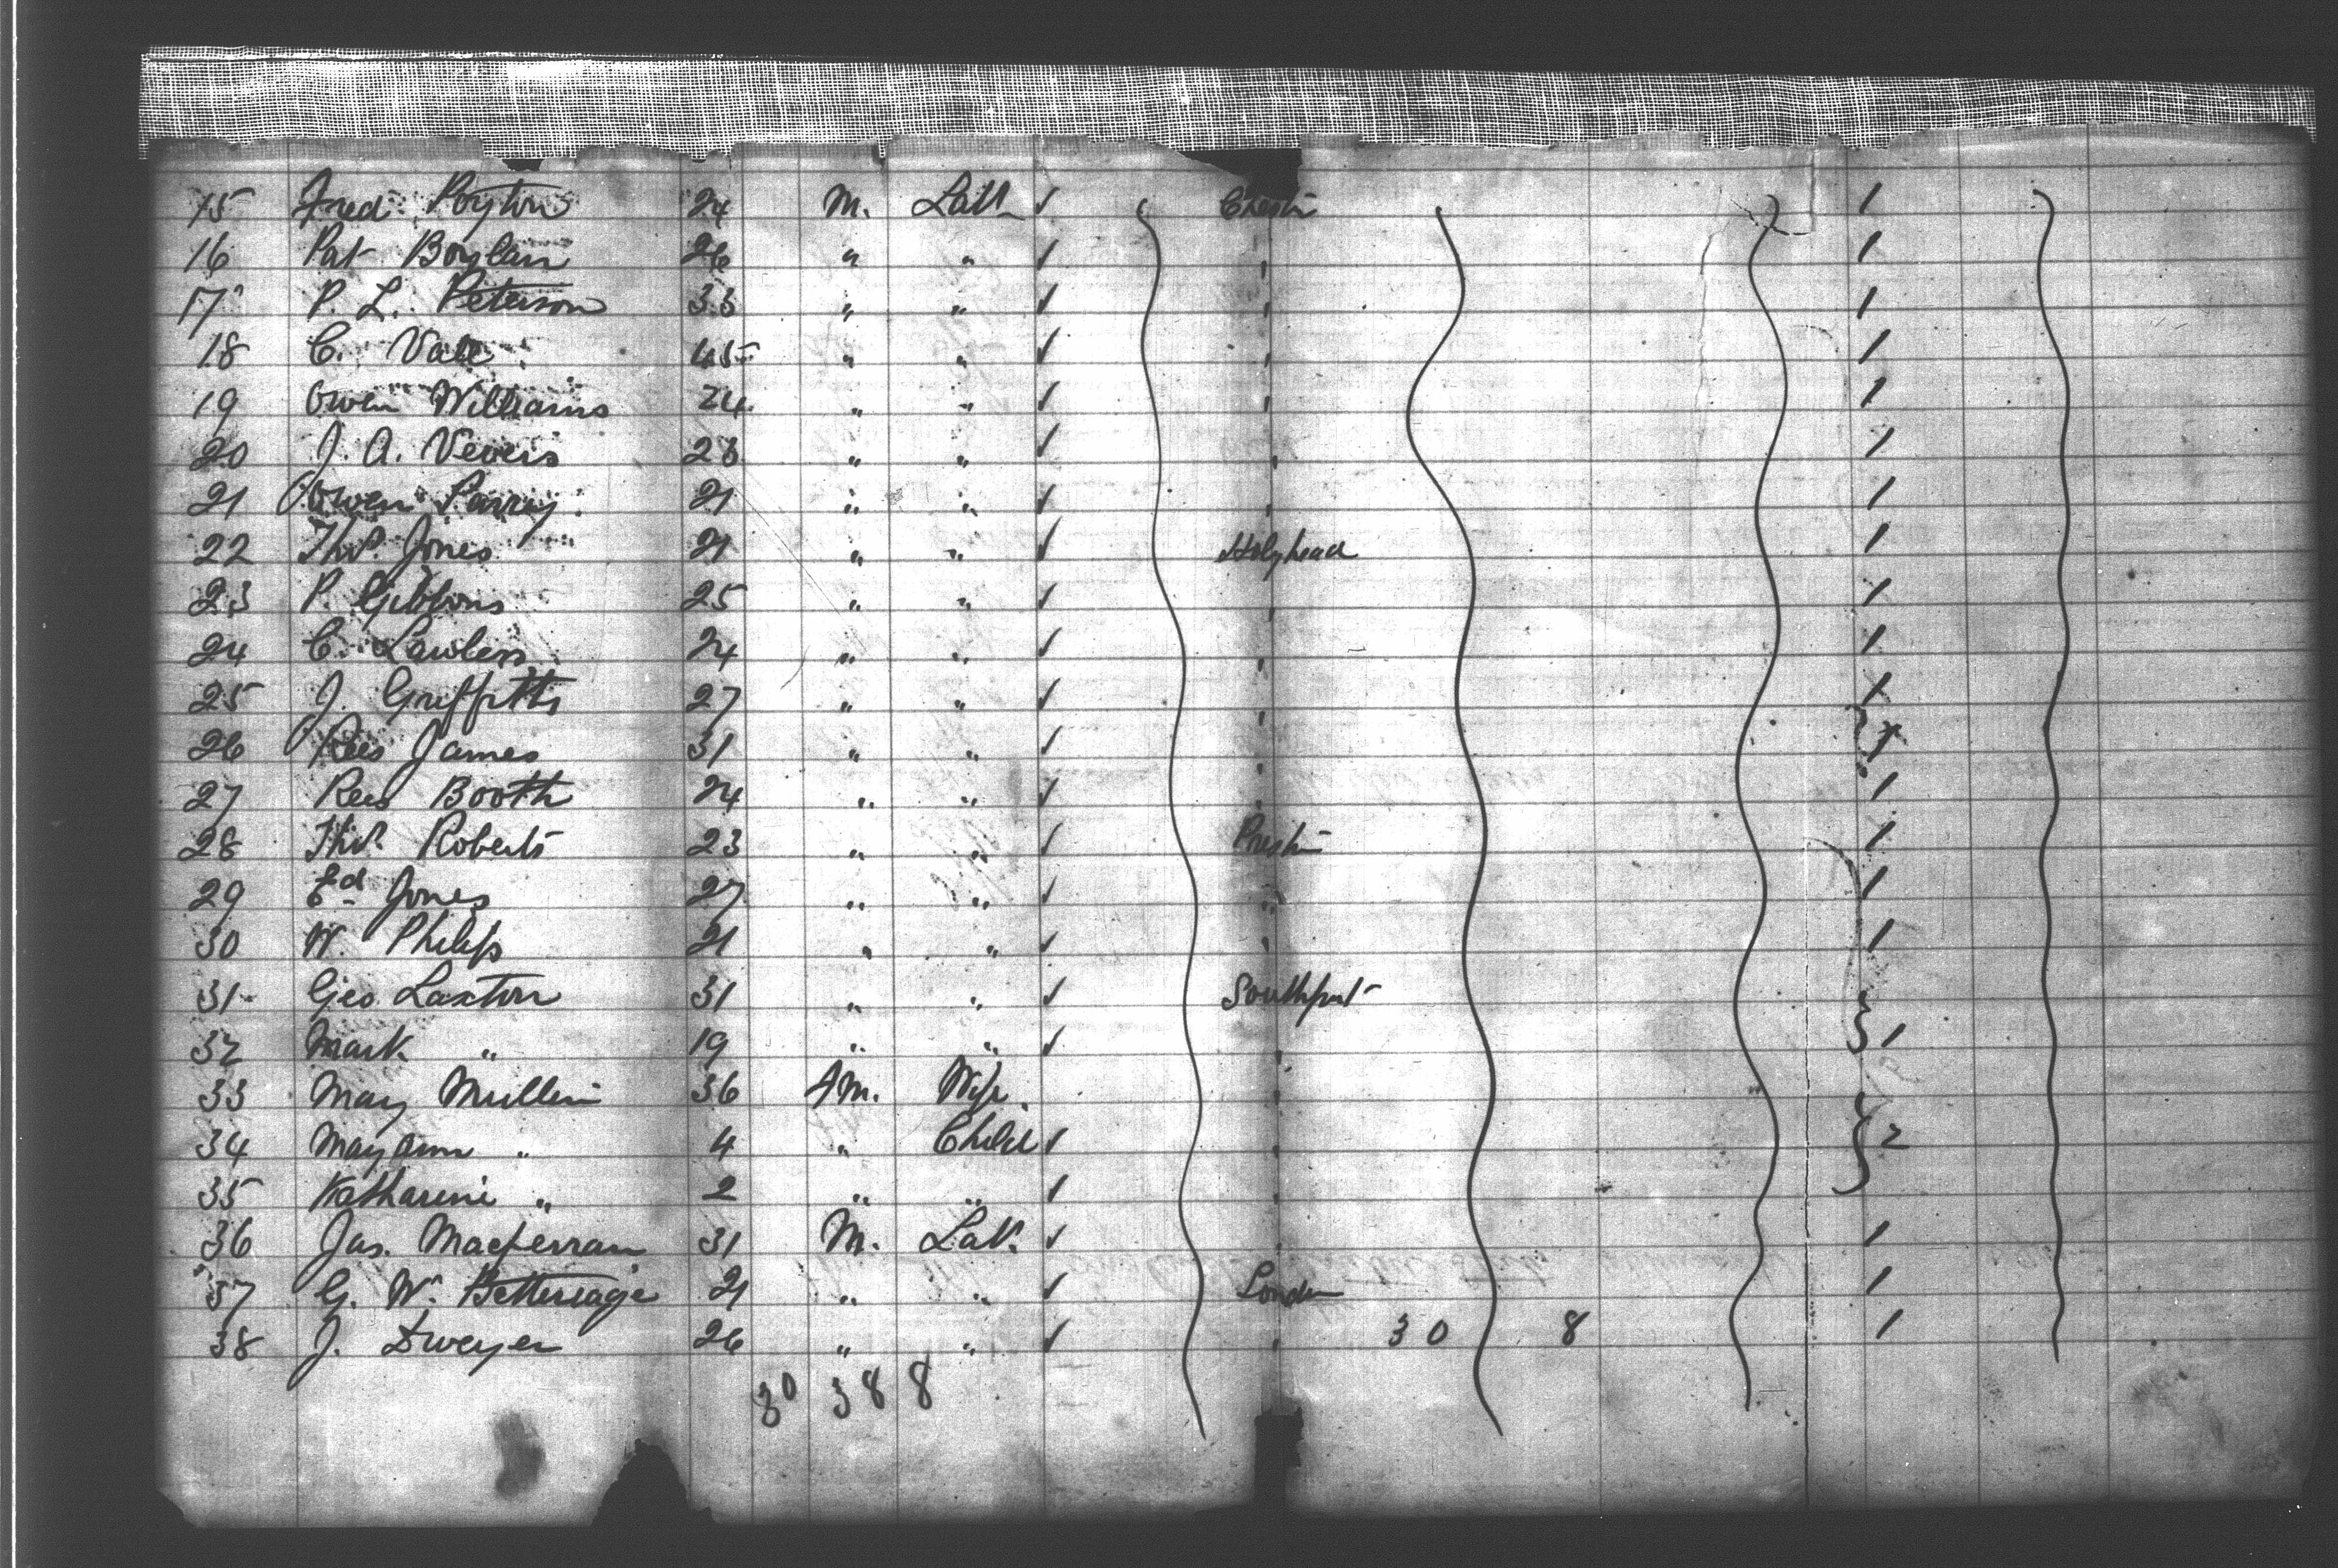 15 Fred Poyton 24 M. Lab. ✓ Chester 1
16 Pat Boylan 26 " " ✓ " 1
17 P. L. Peterson 33 " " ✓ " 1
18 C. Vale 45 " " ✓ " 1
19 Owen Williams 24 " " ✓ " 1
20 J. A. Vevers 28 " " ✓ " 1
21 Owen Parry 21 " " ✓ " 1
22 Thos Jones 21 " " ✓ Holyhead 1
23 P. Gibbons 25 " " ✓ " 1
24 C. Lawless 24 " " ✓ " 1
25 J. Griffiths 27 " " ✓ " 1
26 Rees James 31 " " ✓ " 1
27 Rees Booth 24 " " ✓ " 1
28 Thos Roberts 23 " " ✓ Preston 1
29 Ed Jones 27 " " ✓ " 1
30 W. Philips 21 " " ✓ " 1
31 Geo Laxton 31 " " ✓ Southport
32 Mark " 19 " " ✓ " 1
33 Mary Mullin 36 Wife "
34 Mary Ann " 4 " Child ✓ " 2
35 Katharine " 2 " " ✓ "
36 Jas. Macferran 31 M. Lab. ✓ " 1
37 G. W. Betterage 21 " " ✓ London 1
38 J. Dweyer 26 " " ✓ " 30 8 1
30 38 8